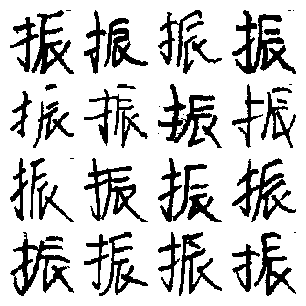 振振振振
振振振振
振振振振
振振振振